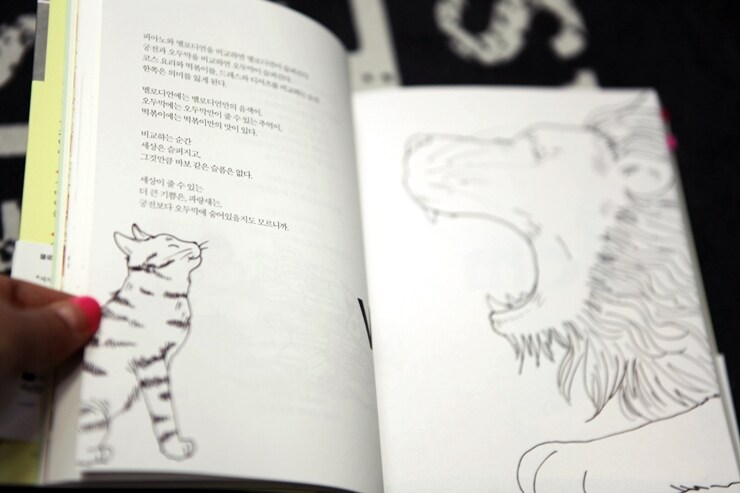 피아노와 멜로디언을 비교하면 멜로디언이 슬퍼진다.
궁전과 오두막을 비교하면 오두막이 슬퍼진다.
코스 요리와 떡볶이를, 드레스와 티셔츠를 비교하는 순간
한쪽은 의미를 잃게 된다.
멜로디언에는 멜로디언만의 음색이,
오두막에는 오두막만이 줄 수 있는 추억이,
떡볶이에는 떡볶이만의 맛이 있다.
비교하는 순간
세상은 슬퍼지고,
그것만큼 바보 같은 슬픔은 없다.
세상이 줄 수 있는
더 큰 기쁨은, 파랑새는,
궁전보다 오두막에 숨어있을지도 모르니까.